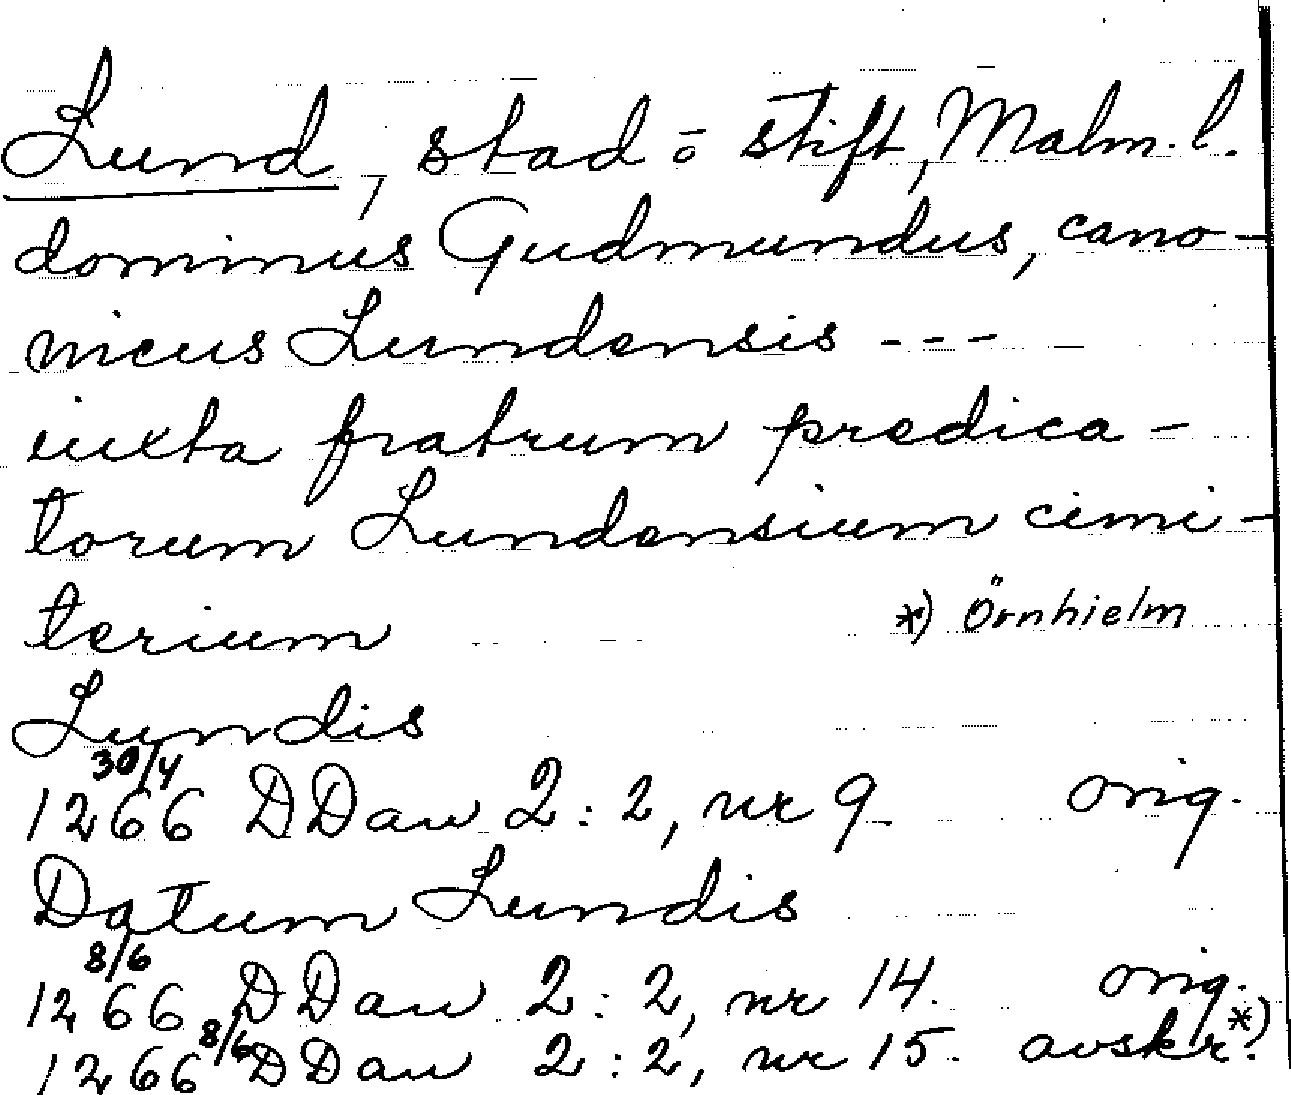 Lund, stad ō stift, Malm. l.
dominus Gudmundus, cano-
nicus Lundensis ---
iuxta fratrum predica-
torum Lundensium cimi-
terium *) Örnhielm
Lundis
30/4
1266 DDan 2:2, nr 9 orig.
Datum Lundis
8/6
1266 DDan 2:2, nr 14. orig.
1266 8/6 DDan 2:2, nr 15. avskr.*)